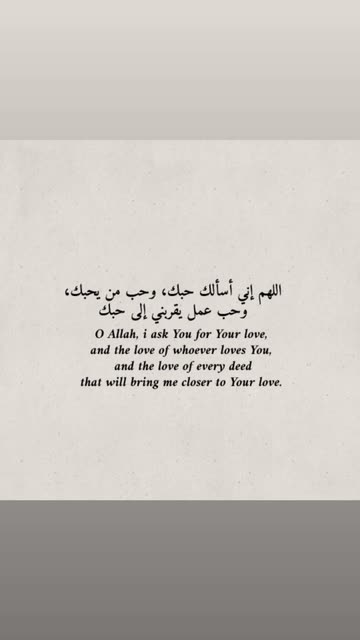 اللهم إني أسألك حبك، وحب من يحبك،
وحب عمل يقربني إلى حبك
O Allah, i ask You for Your love,
and the love of whoever loves You,
and the love of every deed
that will bring me closer to Your love.